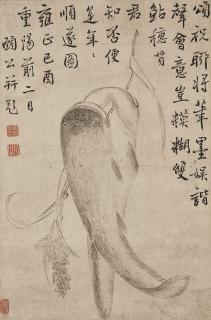 頌祝聊將筆墨娛諧
聲會意豈模糊雙
鮎穗貫
君
知否便
是年年
順遂圖
雍正己酉
重陽前二日
顧公并題